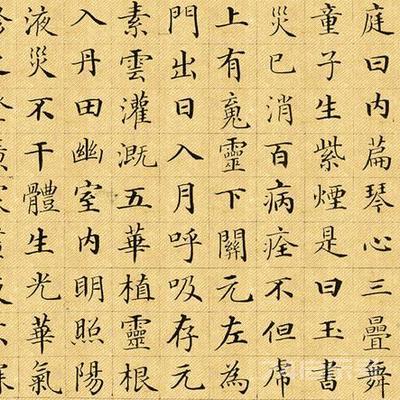 庭曰内篇琴心三疊舞
童子生紫煙是曰玉書
災已消百病痊不但虎
上有魂靈下關元左為
門出日入月呼吸存元
素雲灌溉五華植靈根
入丹田幽室内明照陽
液災不干體生光華氣